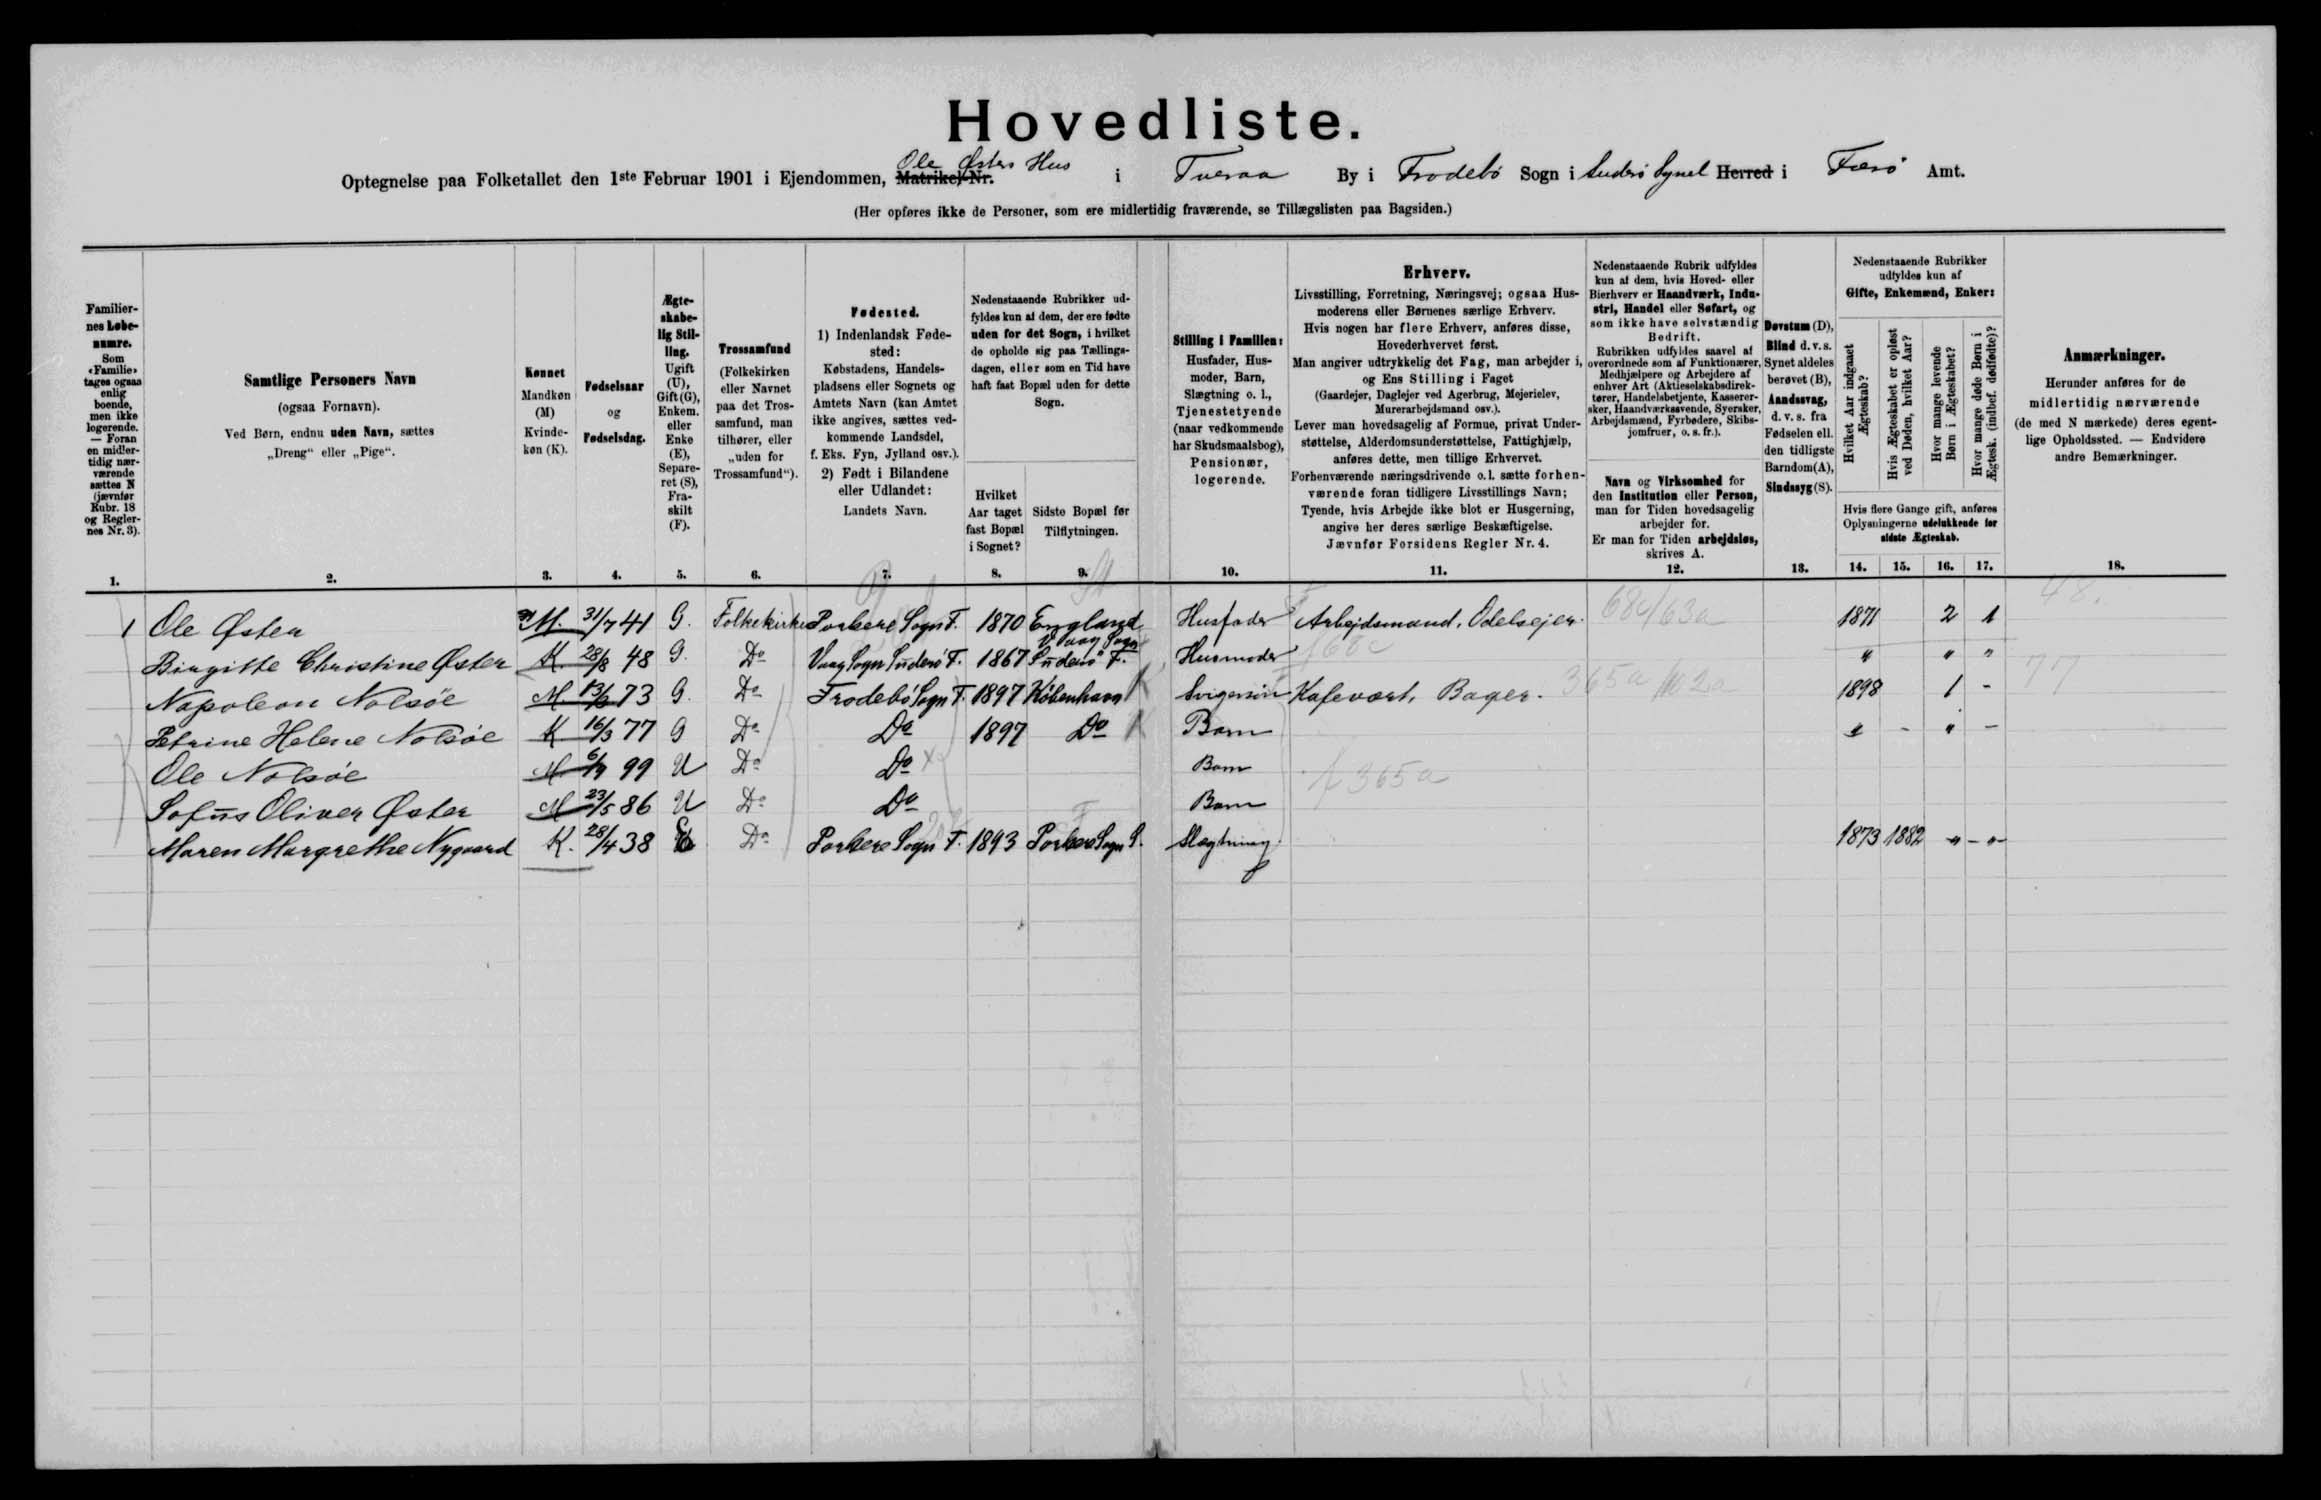 Hovedliste.
Optegnelse paa Folketallet den 1ste Februar 1901 i Ejendommen, Matrikel-Nr. Ole Østers Hus i Tveraa By i Frodebö Sogn i Suderö Sysel Herred i Færö Amt.
(Her opføres ikke de Personer, som ere midlertidig fraværende, se Tillægslisten paa Bagsiden.)
Familier-
nes Løbe-
numre.
Som
«Familie»
tages ogsaa
enlig
boende,
men ikke
logerende.
— Foran
en midler-
tidig nær-
værende
sættes N
(jævnfør
Rubr. 18
og Regler-
nes Nr. 3).
1.
Samtlige Personers Navn
(ogsaa Fornavn).
Ved Børn, endnu uden Navn, sættes
„Dreng“ eller „Pige“.
2.
Kønnet
Mandkøn
(M)
Kvinde-
køn (K).
3.
Fødselsaar
og
Fødselsdag.
4.
Ægte-
skabe-
lig Stil-
ling.
Ugift
(U),
Gift (G),
Enkem.
eller
Enke
(E),
Separe-
ret (S),
Fra-
skilt
(F).
5.
Trossamfund
(Folkekirken
eller Navnet
paa det Tros-
samfund, man
tilhører, eller
„uden for
Trossamfund“).
6.
Fødested.
1) Indenlandsk Føde-
sted:
Købstadens, Handels-
pladsens eller Sognets og
Amtets Navn (kan Amtet
ikke angives, sættes ved-
kommende Landsdel,
f. Eks. Fyn, Jylland osv.).
2) Født i Bilandene
eller Udlandet:
Landets Navn.
7.
Nedenstaaende Rubrikker ud-
fyldes kun af dem, der ere fødte
uden for det Sogn, i hvilket
de opholde sig paa Tællings-
dagen, eller som en Tid have
haft fast Bopæl uden for dette
Sogn.
Hvilket
Aar taget
fast Bopæl
i Sognet?
8.
Sidste Bopæl før
Tilflytningen.
9.
Stilling i Familien:
Husfader, Hus-
moder, Barn,
Slægtning o. l.,
Tjenestetyende
(naar vedkommende
har Skudsmaalsbog),
Pensionær,
logerende.
10.
Erhverv.
Livsstilling, Forretning, Næringsvej; ogsaa Hus-
moderens eller Børnenes særlige Erhverv.
Hvis nogen har flere Erhverv, anføres disse,
Hovederhvervet først.
Man angiver udtrykkelig det Fag, man arbejder i,
og Ens Stilling i Faget
(Gaardejer, Daglejer ved Agerbrug, Mejerielev,
Murerarbejdsmand osv.).
Lever man hovedsagelig af Formue, privat Under-
støttelse, Alderdomsunderstøttelse, Fattighjælp,
anføres dette, men tillige Erhvervet.
Forhenværende næringsdrivende o.l. sætte forhen-
værende foran tidligere Livsstillings Navn;
Tyende, hvis Arbejde ikke blot er Husgerning,
angive her deres særlige Beskæftigelse.
Jævnfør Forsidens Regler Nr. 4.
11.
Nedenstaaende Rubrik udfyldes
kun af dem, hvis Hoved- eller
Bierhverv er Haandværk, Indu-
stri, Handel eller Søfart, og
som ikke have selvstændig
Bedrift.
Rubrikken udfyldes saavel af
overordnede som af Funktionærer,
Medhjælpere og Arbejdere af
enhver Art (Aktieselskabsdirek-
tører, Handelsbetjente, Kasserer-
sker, Haandværkssvende, Syersker,
Arbejdsmænd, Fyrbødere, Skibs-
jomfruer, o. s. fr.).
Navn og Virksomhed for
den Institution eller Person,
man for Tiden hovedsagelig
arbejder for.
Er man for Tiden arbejdsløs,
skrives A.
12.
Døvstum (D),
Blind d. v. s.
Synet aldeles
berøvet (B),
Aandssvag,
d. v. s. fra
Fødselen ell.
den tidligste
Barndom (A),
Sindssyg (S).
13.
Nedenstaaende Rubrikker
udfyldes kun af
Gifte, Enkemænd, Enker:
Hvilket Aar indgaaet
Ægteskab?
Hvis Ægteskabet er opløst
ved Døden, hvilket Aar?
Hvor mange levende
Børn i Ægteskabet?
Hvor mange døde Børn i
Ægtesk. (indbef. dødfødte)?
Hvis flere Gange gift, anføres
Oplysningerne udelukkende for
sidste Ægteskab.
14. 15. 16. 17.
Anmærkninger.
Herunder anføres for de
midlertidig nærværende
(de med N mærkede) deres egent-
lige Opholdssted. — Endvidere
andre Bemærkninger.
18.
1 Ole Øster M. 31/7 41 G. Folkekirke Porkere Sogn F. 1870 England Husfader Arbejdsmand, Odelsejer. 68c/63a 1871 2 1 48.
Birgitte Christine Øster K. 28/8 48 G. Do Vaag Sogn Suderö F. 1867 Vaag Sogn Suderö F. Husmoder f68c " " "
Napoleon Nolsöe M. 13/9 73 G. Do Frodebö Sogn F. 1897 København K Svigersön Kafevært, Bager. 365a 1898 1 - 77
Petrine Helene Nolsöe K 16/3 77 G Do Do 1897 Do K Barn " - " -
Ole Nolsöe M 6/9 99 U Do Do Barn f 365a
Sofus Oliver Øster M 23/5 86 U Do Do Barn
Maren Margrethe Nygaard K. 28/4 38 E Do Porkere Sogn F. 1893 Porkere Sogn S. Slægtning. 1873 1882 " - " -